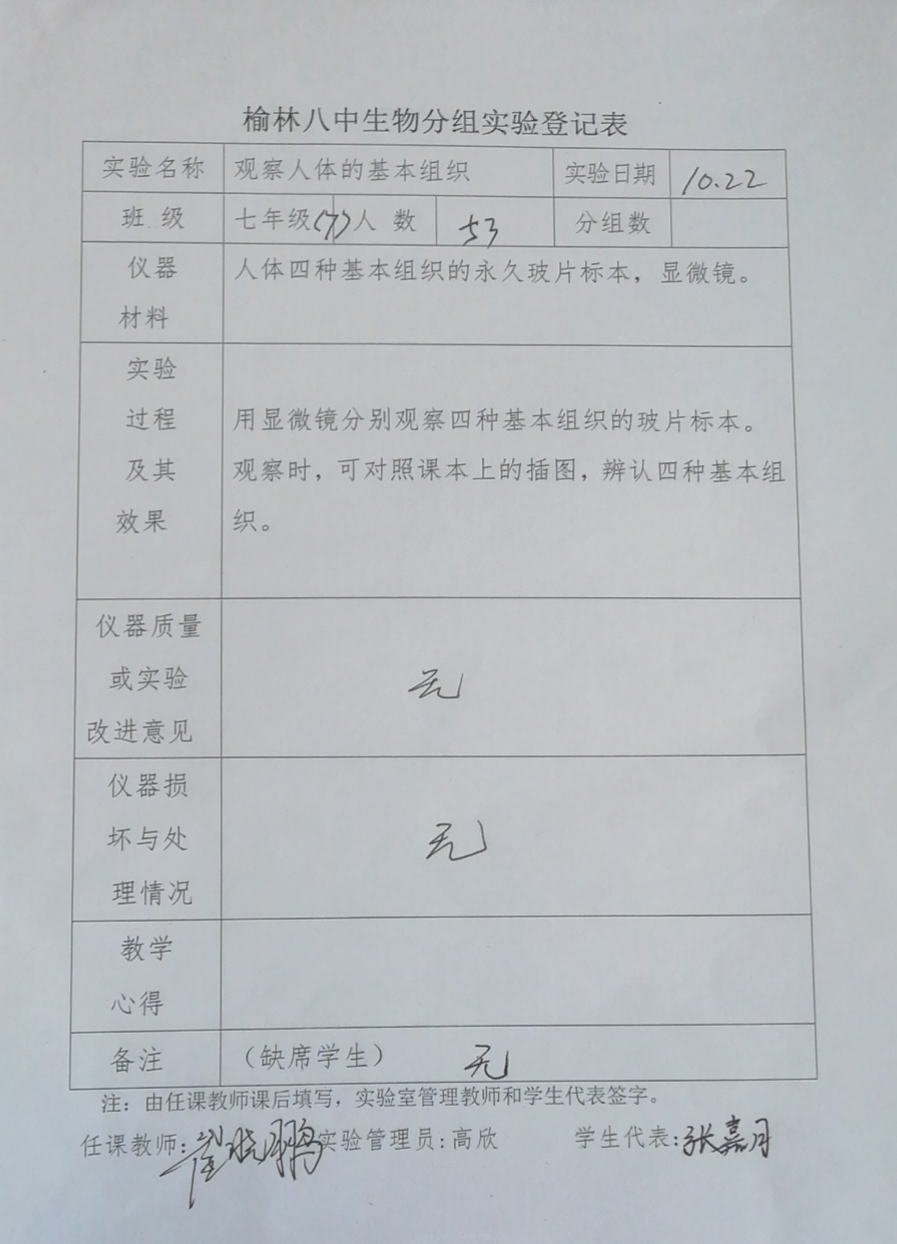 榆林八中生物分组实验登记表
实验名称 观察人体的基本组织 实验日期 10.22
班 级 七年级(7) 人 数 53 分组数
仪器 人体四种基本组织的永久玻片标本，显微镜。
材料
实验
过程 用显微镜分别观察四种基本组织的玻片标本。
及其 观察时，可对照课本上的插图，辨认四种基本组
效果 织。
仪器质量
或实验 无
改进意见
仪器损
坏与处 无
理情况
教学
心得
备注 （缺席学生） 无
注：由任课教师课后填写，实验室管理教师和学生代表签字。
任课教师：崔晓鹏 实验管理员：高欣 学生代表：张嘉月